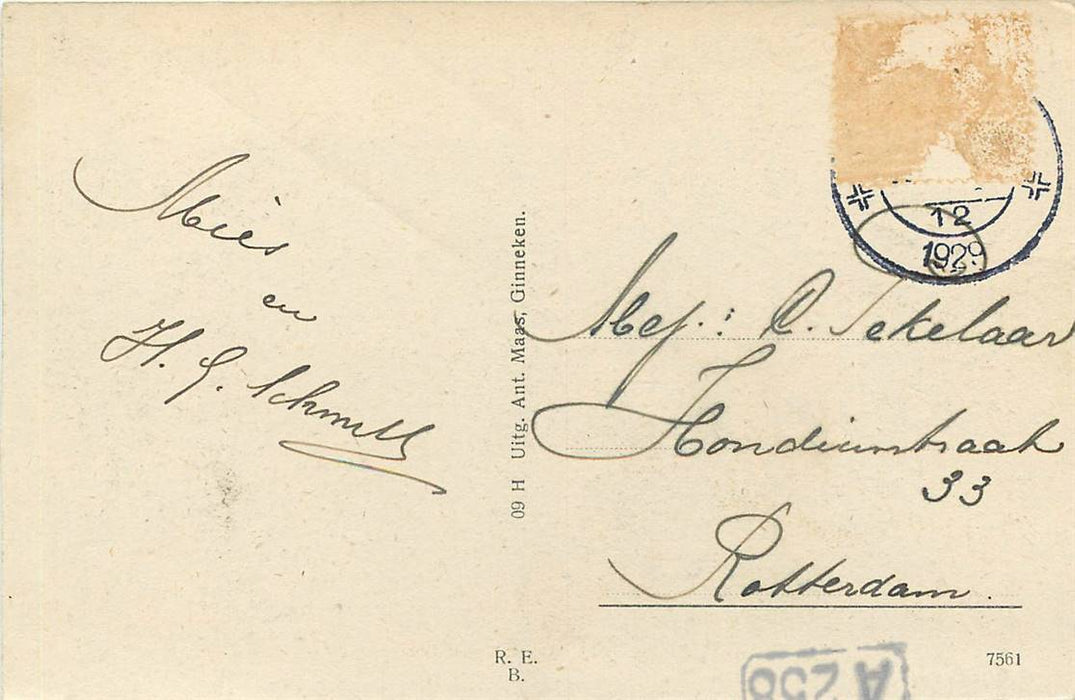 Mies
en
H. G. Schmitt
09 H Uitg. Ant. Maas, Ginneken.
12
1929
Mej.: C. Tekelaar
Hondiusstraat
33
Rotterdam.
R. E.
B.
7561